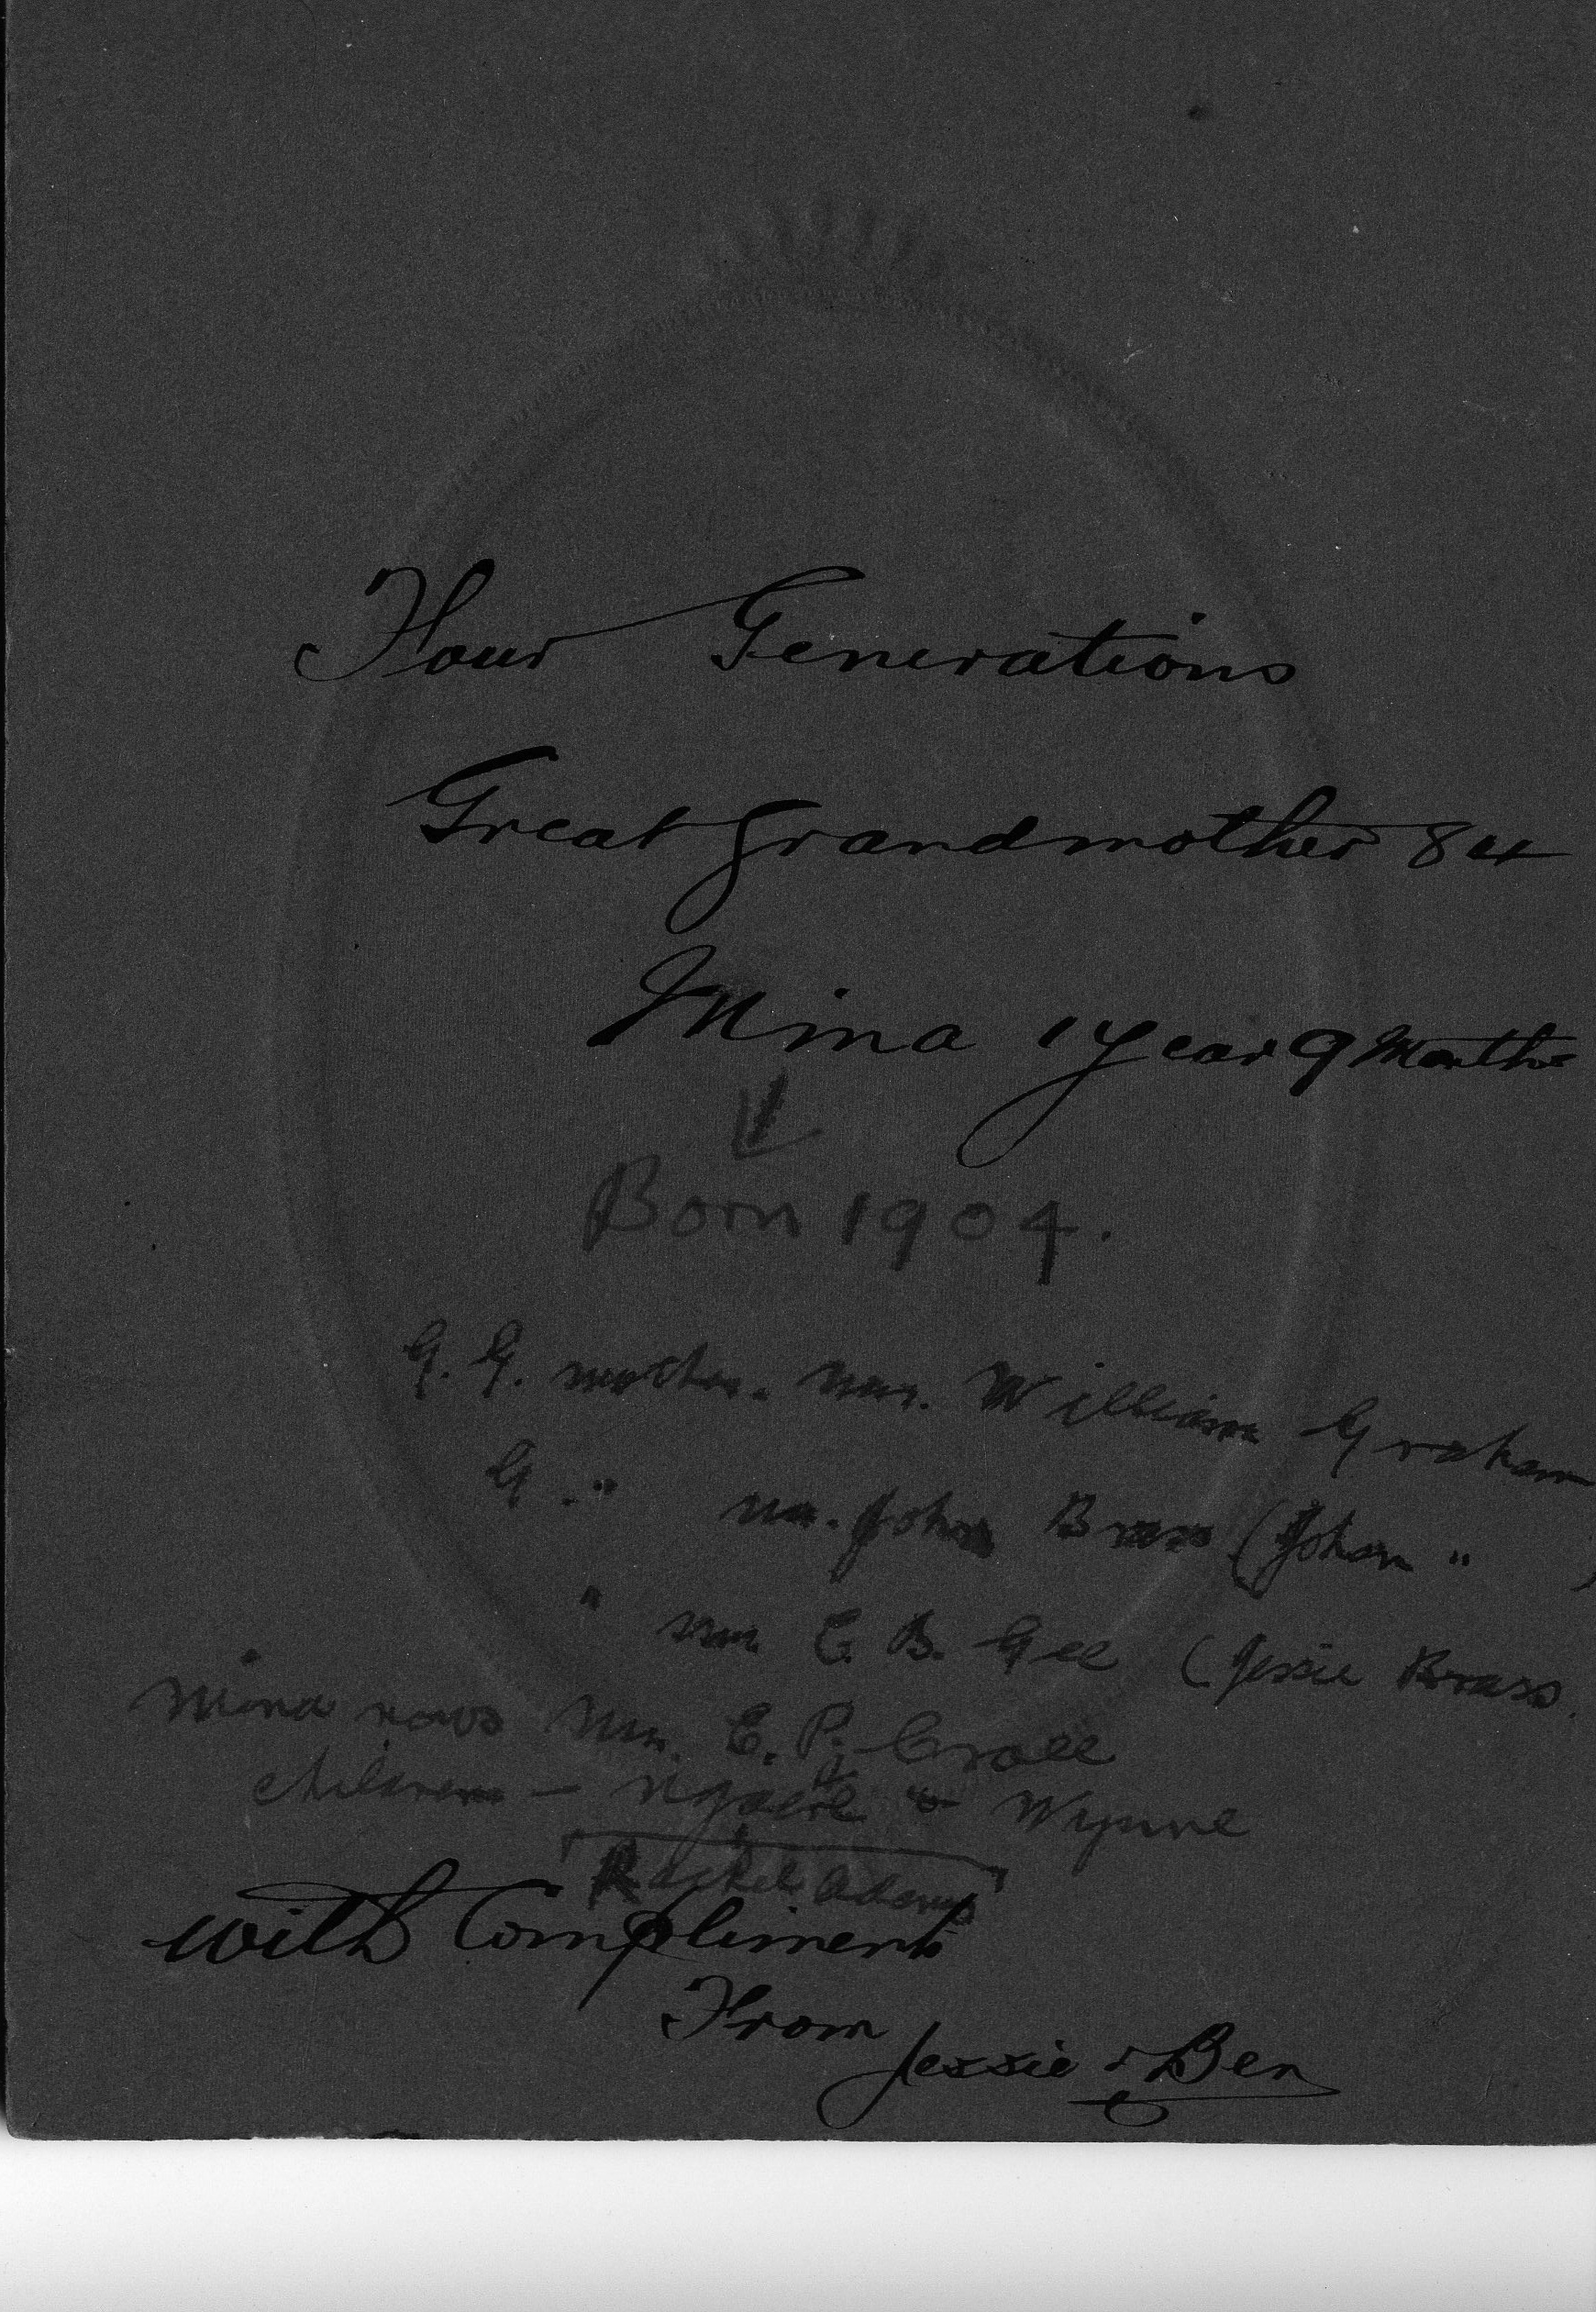 Four Generations
Great grandmother 84
Mina 1 year 9 Months
Born 1904.
G. G. mother. Mrs. William Graham
G. " Mrs. John Brass (Johan " )
" Mrs. E. B. Gee (Jessie Brass.
Mina now Mrs. E. P. Croll
children - Ngaere & Wynne
Rachel Adams
with Compliments
From
Jessie & Ben